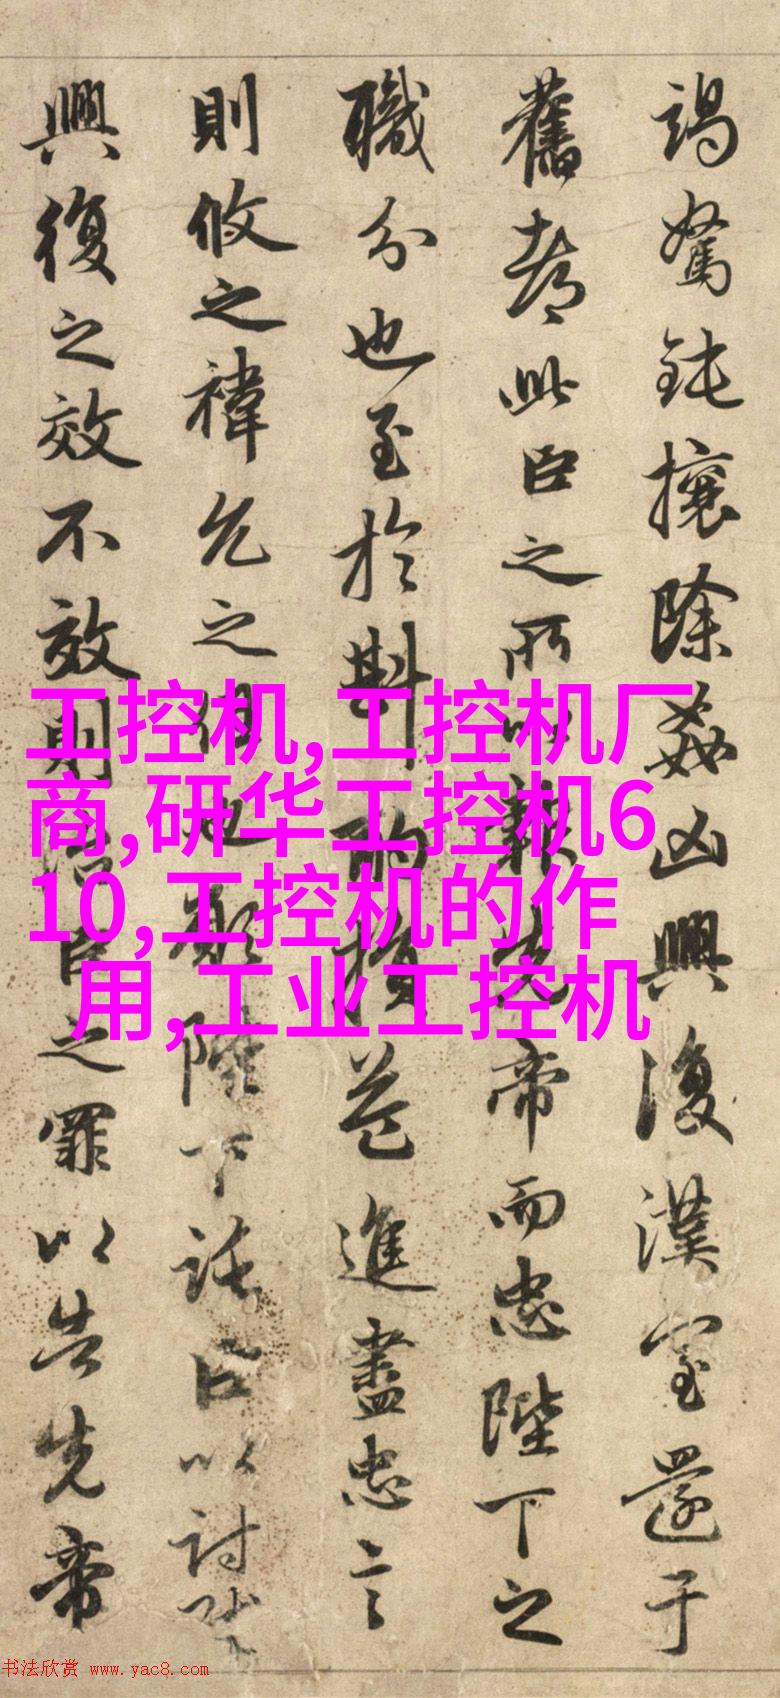 竭駑鈍攘除姦凶興復漢室還于
舊都此臣之所以報先帝而忠陛下之
職分也至於斟酌損益進盡忠言
則攸之禕允之任也願陛下託臣以討賊
興復之效不效則治臣之罪以告先帝
工控机,工控机厂
商,研华工控机6
10,工控机的作
用,工业工控机
书法欣赏 www.yac8.com